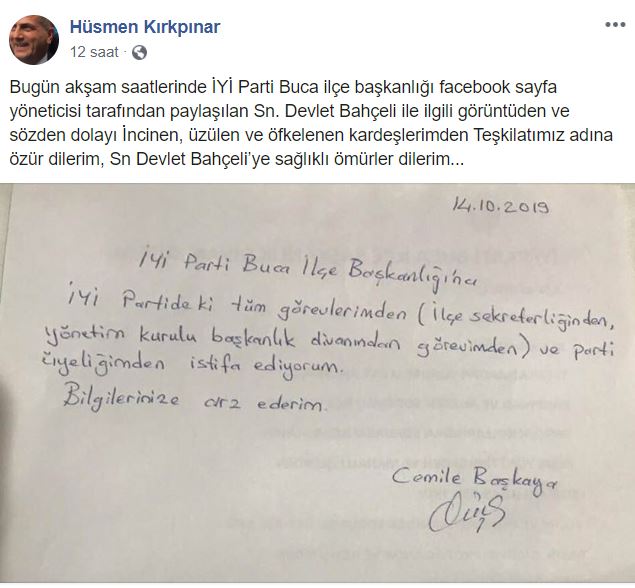 Hüsmen Kırkpınar
12 saat ·
Bugün akşam saatlerinde İYİ Parti Buca ilçe başkanlığı facebook sayfa
yöneticisi tarafından paylaşılan Sn. Devlet Bahçeli ile ilgili görüntüden ve
sözden dolayı İncinen, üzülen ve öfkelenen kardeşlerimden Teşkilatımız adına
özür dilerim, Sn Devlet Bahçeli'ye sağlıklı ömürler dilerim...
14.10.2019
İYİ Parti Buca İlçe Başkanlığı'na
İYİ Partideki tüm görevlerimden (İlçe sekreterliğinden,
yönetim kurulu başkanlık divanından görevimden) ve parti
üyeliğimden istifa ediyorum.
Bilgilerinize arz ederim.
Comile Başkaya